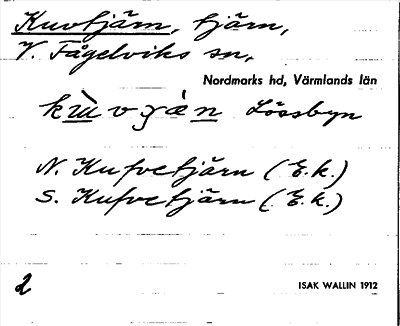 Kuvtjärn, tjärn,
V. Fågelviks sn,
Nordmarks hd, Värmlands län
Lössbyn
N. Kufvetjärn (E.k.)
S. Kufvetjärn (E.k.)
2
ISAK WALLIN 1912